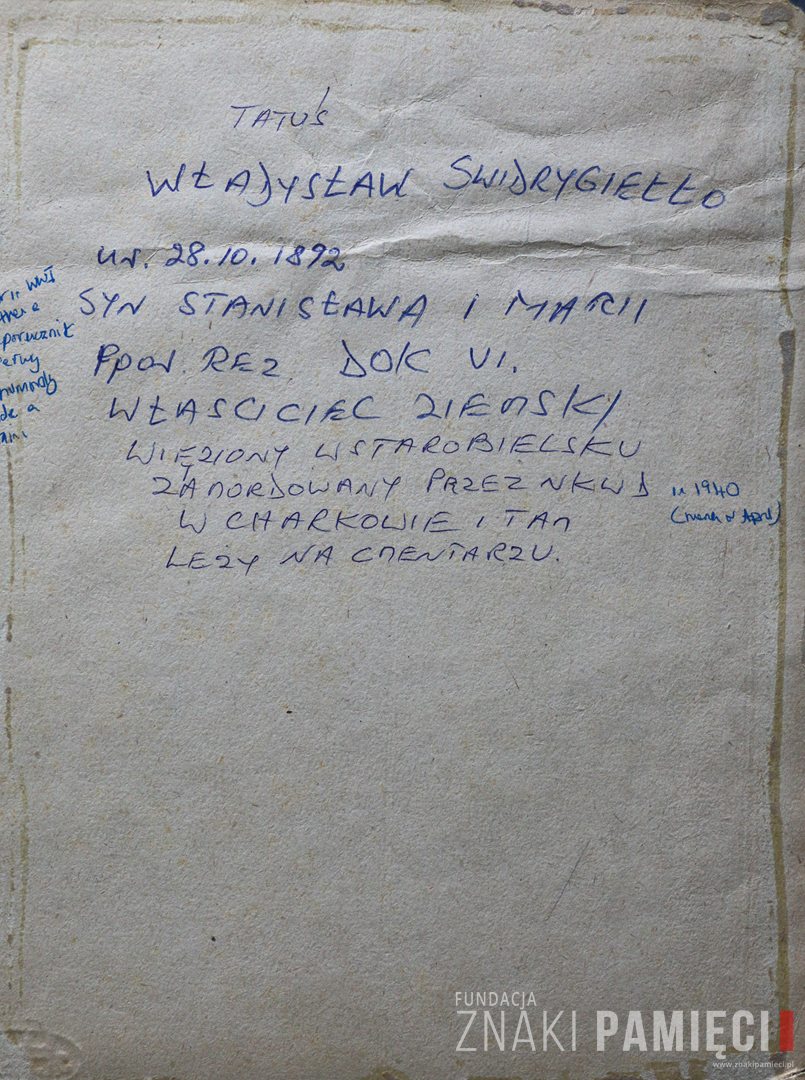 TATUŚ
WŁADYSŁAW SWIDRYGIEŁŁO
ur. 28.10.1892
SYN STANISŁAWA I MARII
Ppor. REZ. DOK VI.
WŁASCICIEL ZIEMSKI
WIĘZIONY W STAROBIELSKU
ZAMORDOWANY PRZEZ NKWD in 1940
W CHARKOWIE I TAM (March or April)
LEZY NA CMENTARZU.
porucznik
FUNDACJA
ZNAKI PAMIĘCI
www.znakipamieci.pl